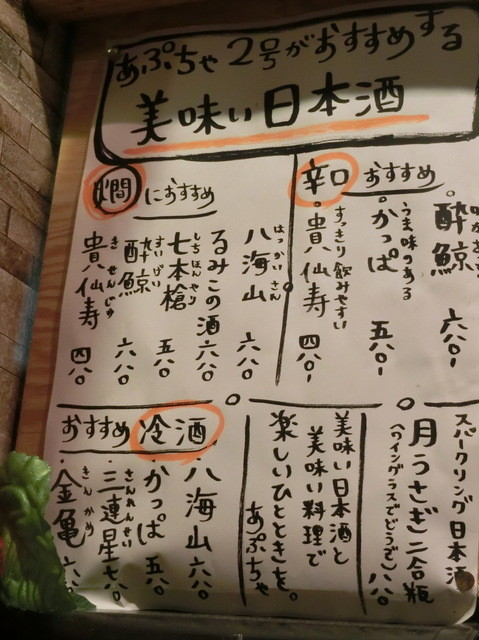 あぷちゃ2号がおすすめする
美味い日本酒
辛口おすすめ
酔鯨 六八〇
うま味のある
かっぱ 五八〇
すっきり飲みやすい
貴仙寿 四八〇
燗におすすめ
八海山 六八〇
はっかいさん
るみこの酒 六八〇
七本槍 五八〇
しちほんやり
酔鯨 六八〇
すいげい
貴仙寿 四八〇
きせんじゅ
スパークリング日本酒
月うさぎ二合瓶
(ワイングラスでどうぞ) 八八〇
美味い日本酒と
美味い料理で
楽しいひとときを。
あぷちゃ
おすすめ冷酒
八海山 六八〇
かっぱ 五八〇
三連星 七八〇
さんれんせい
金亀
きんかめ